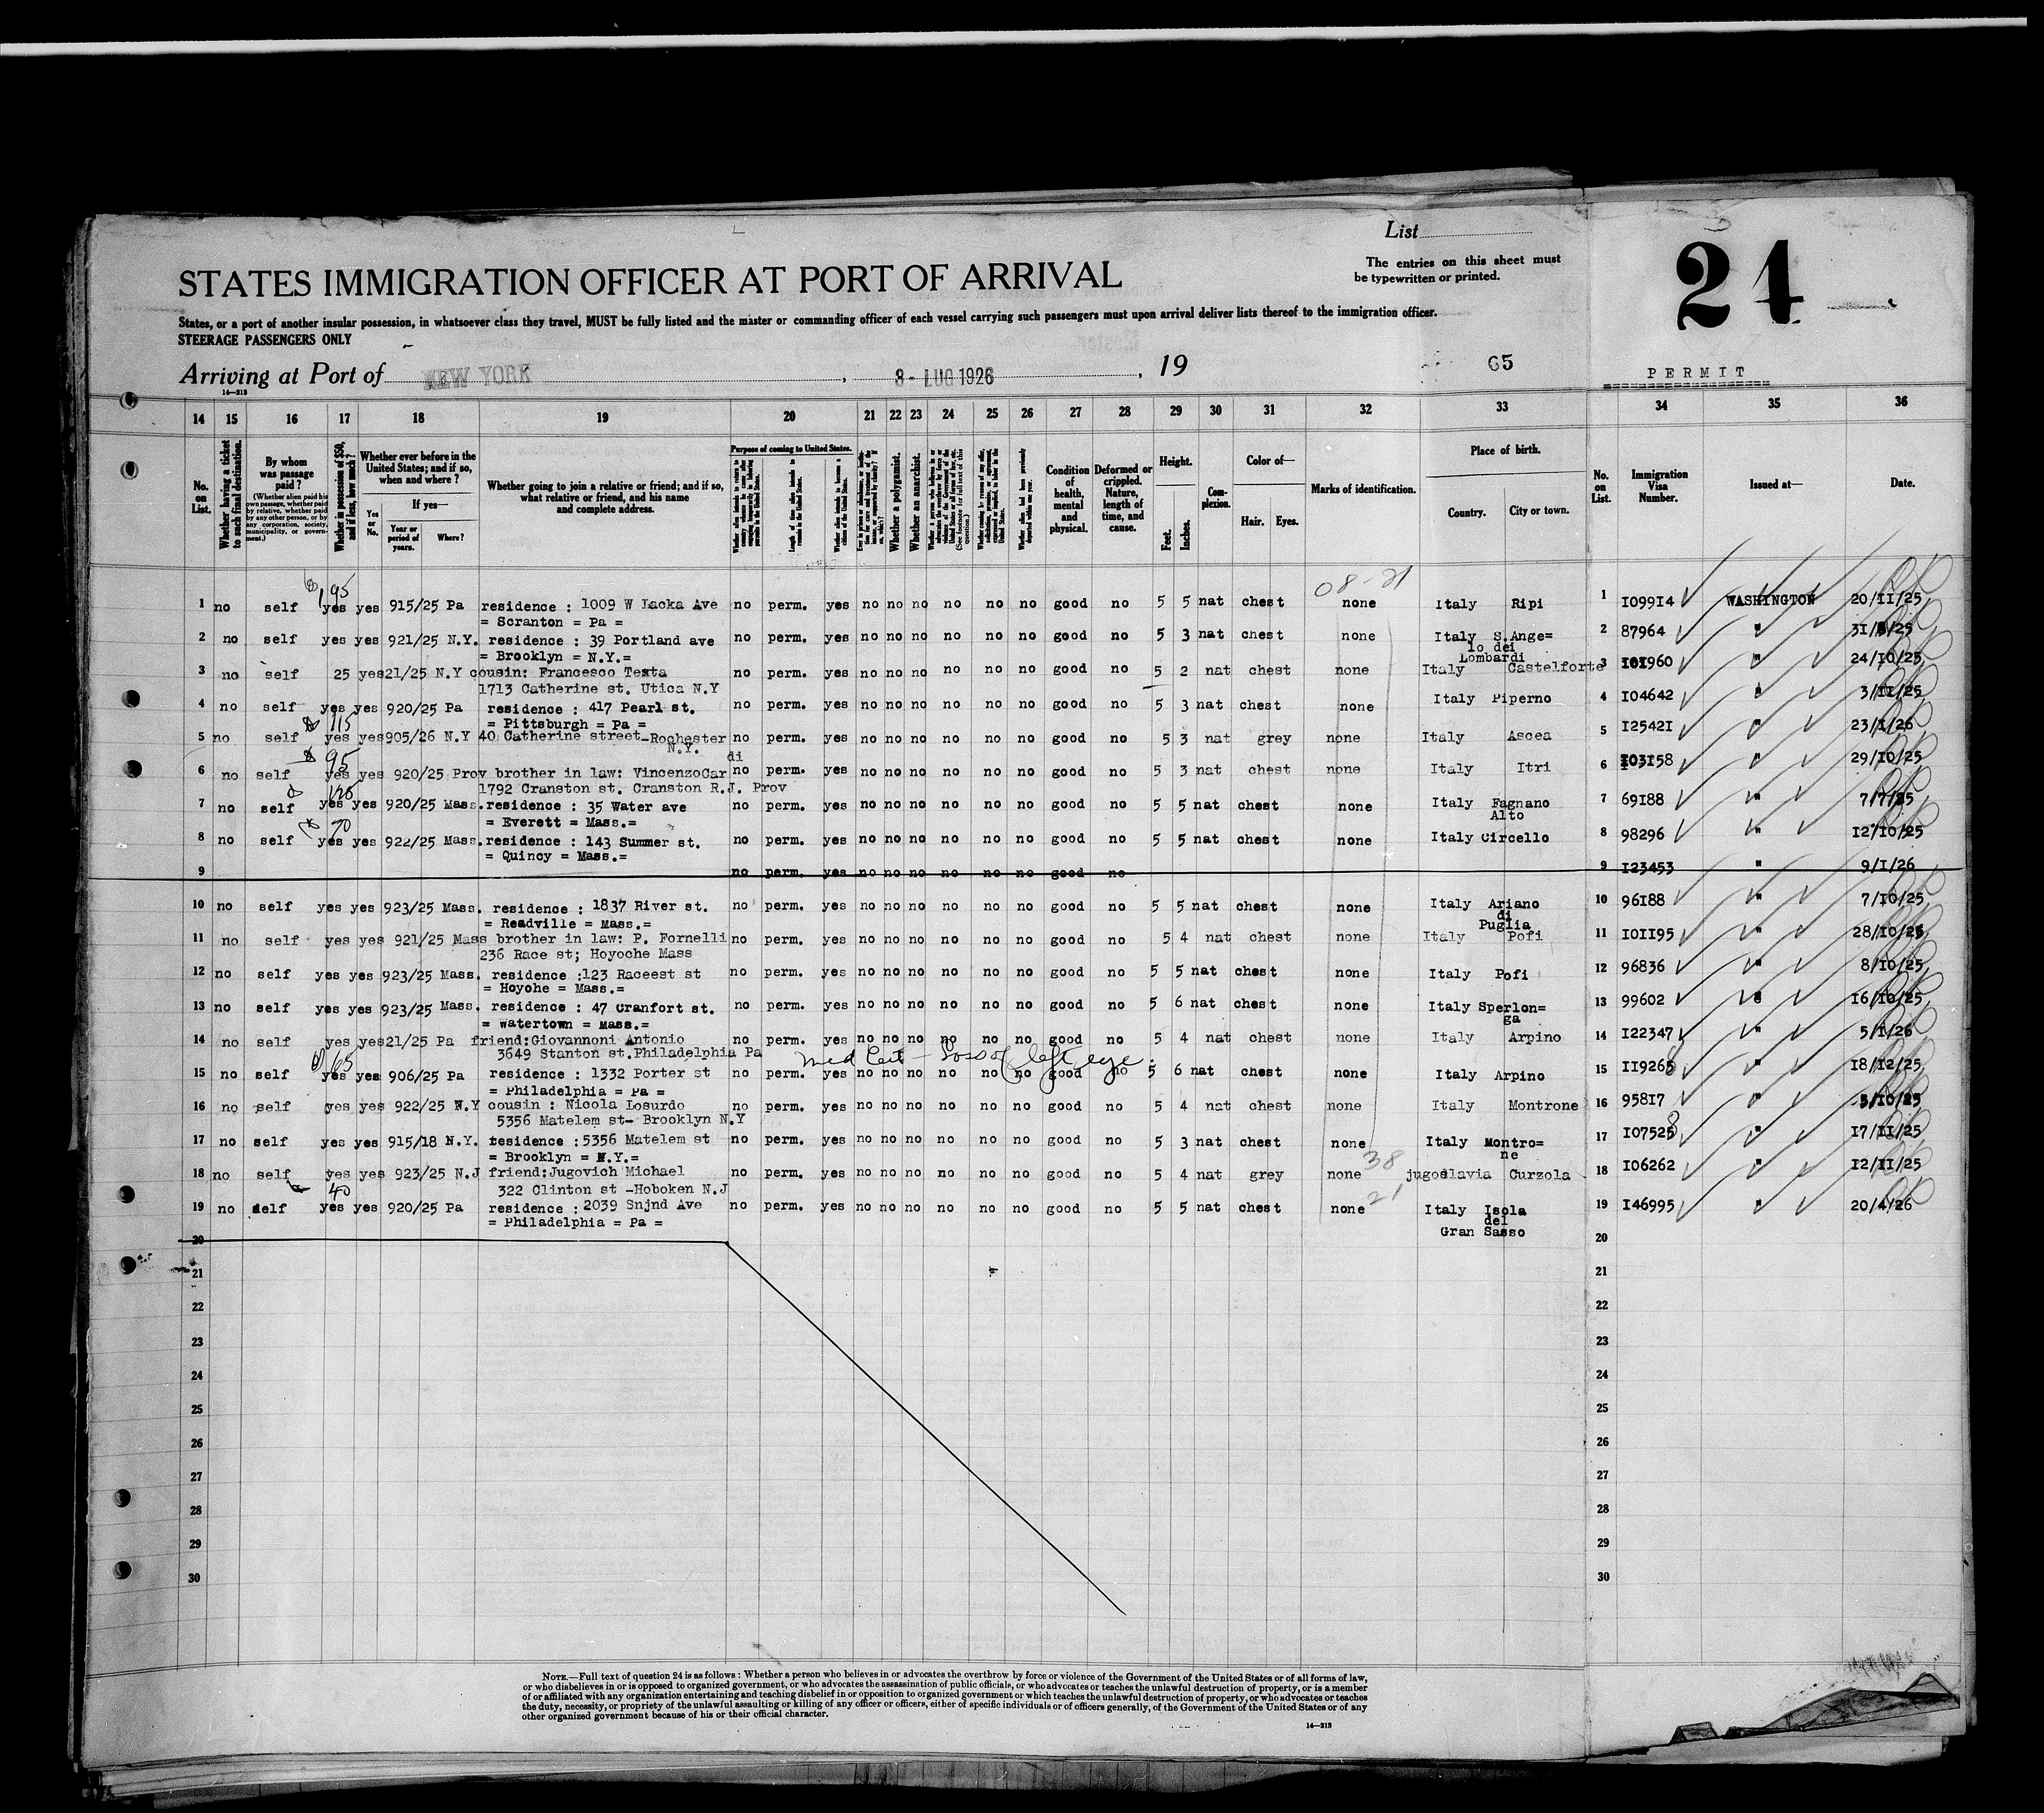 List
24
The entries on this sheet must
be typewritten or printed.
STATES IMMIGRATION OFFICER AT PORT OF ARRIVAL
States, or a port of another insular possession, in whatsoever class they travel, MUST be fully listed and the master or commanding officer of each vessel carrying such passengers must upon arrival deliver lists thereof to the immigration officer.
STEERAGE PASSENGERS ONLY
Arriving at Port of NEW YORK, 8 - LUG 1926, 19 65
PERMIT
14—213
14 15 16 17 18 19 20 21 22 23 24 25 26 27 28 29 30 31 32 33 34 35 36
No. on List.
Whether having a ticket to such final destination.
By whom was passage paid?
(Whether alien paid his own passage, whether paid by relative, whether paid by any other person, or by any corporation, society, municipality, or government.)
Whether in possession of $50, and if less, how much?
Whether ever before in the United States; and if so, when and where?
Yes or No.
If yes—
Year or period of years.
Where?
Whether going to join a relative or friend; and if so, what relative or friend, and his name and complete address.
Purpose of coming to United States.
Length of time alien intends to remain in the United States.
Whether alien intends to become a citizen of the United States.
Whether a polygamist.
Whether an anarchist.
Condition of health, mental and physical.
Deformed or crippled. Nature, length of time, and cause.
Height.
Feet.
Inches.
Complexion.
Color of—
Hair.
Eyes.
Marks of identification.
Place of birth.
Country.
City or town.
No. on List.
Immigration Visa Number.
Issued at—
Date.
08-21
195
1 no self yes yes 915/25 Pa residence : 1009 W Lacka Ave no perm. yes no no no no no no good no 5 5 nat chest none Italy Ripi 1 I09914 WASHINGTON 20/II/25
= Scranton = Pa =
2 no self yes yes 921/25 N.Y. residence : 39 Portland ave no perm. yes no no no no no no good no 5 3 nat chest none Italy S.Ange= 2 87964 " 31/8/25
= Brooklyn = N.Y.= lo dei
Lombardi
3 no self 25 yes 21/25 N.Y cousin: Francesco Testa no perm. yes no no no no no no good no 5 2 nat chest none Italy Castelforte 3 I01960 " 24/10/25
1713 Catherine st. Utica N.Y
4 no self yes yes 920/25 Pa residence : 417 Pearl st. no perm. yes no no no no no no good no 5 3 nat chest none Italy Piperno 4 I04642 " 3/II/25
= Pittsburgh = Pa =
115
5 no self yes yes 905/26 N.Y 40 Catherine street-Rochester no perm. yes no no no no no no good no 5 3 nat grey none Italy Ascea 5 I2542I " 23/I/26
N.Y.
95 di
6 no self yes yes 920/25 Prov brother in law: VincenzoCar no perm. yes no no no no no no good no 5 3 nat chest none Italy Itri 6 I03I58 " 29/10/25
1792 Cranston st. Cranston R.J. Prov
7 no self yes yes 920/25 Mass. residence : 35 Water ave no perm. yes no no no no no no good no 5 5 nat chest none Italy Fagnano 7 69I88 " 7/7/25
= Everett = Mass.= Alto
70
8 no self yes yes 922/25 Mass. residence : 143 Summer st. no perm. yes no no no no no no good no 5 5 nat chest none Italy Circello 8 98296 " 12/10/25
= Quincy = Mass.=
9 no perm. yes no no no no no no good no 9 I23453 " 9/I/26
10 no self yes yes 923/25 Mass. residence : 1837 River st. no perm. yes no no no no no no good no 5 5 nat chest none Italy Ariano 10 96I88 " 7/10/25
= Readville = Mass.= di
Puglia
11 no self yes yes 921/25 Mass brother in law: P. Fornelli no perm. yes no no no no no no good no 5 4 nat chest none Italy Pofi 11 I0II95 " 28/10/25
236 Race st; Hoyoche Mass
12 no self yes yes 923/25 Mass. residence :123 Raceest st no perm. yes no no no no no no good no 5 5 nat chest none Italy Pofi 12 96836 " 8/10/25
= Hoyohe = Mass.=
13 no self yes yes 923/25 Mass. residence : 47 Cranfort st. no perm. yes no no no no no no good no 5 6 nat chest none Italy Sperlon= 13 99602 " 16/10/25
= Watertown = Mass.= ga
14 no self yes yes 21/25 Pa friend:Giovannoni Antonio no perm. yes no no no no no no good no 5 4 nat chest none Italy Arpino 14 I22347 " 5/I/26
3649 Stanton st.Philadelphia Pa
Med Cert - Loss of left eye.
65
15 no self yes yes 906/25 Pa residence : 1332 Porter st no perm. yes no no no no no no good no 5 6 nat chest none Italy Arpino 15 II9268 " 18/12/25
= Philadelphia = Pa =
16 no self yes yes 922/25 N.Y cousin : Nicola Losurdo no perm. yes no no no no no no good no 5 4 nat chest none Italy Montrone 16 958I7 " 5/10/25
5356 Matelem st- Brooklyn N.Y
17 no self yes yes 915/18 N.Y. residence :5356 Matelem st no perm. yes no no no no no no good no 5 3 nat chest none Italy Montro= 17 I07528 " 17/II/25
= Brooklyn = N.Y.= ne
38
18 no self yes yes 923/25 N.J friend:Jugovich Michael no perm. yes no no no no no no good no 5 4 nat grey none jugoslavia Curzola 18 I06262 " 12/II/25
322 Clinton st -Hoboken N.J
40 21
19 no self yes yes 920/25 Pa residence : 2039 Snjnd Ave no perm. yes no no no no no no good no 5 5 nat chest none Italy Isola 19 I46995 " 20/4/26
= Philadelphia = Pa = del
Gran Sasso
20 20
21 21
22 22
23 23
24 24
25 25
26 26
27 27
28 28
29 29
30 30
NOTE.—Full text of question 24 is as follows: Whether a person who believes in or advocates the overthrow by force or violence of the Government of the United States or of all forms of law,
or who disbelieves in or is opposed to organized government, or who advocates the assassination of public officials, or who advocates or teaches the unlawful destruction of property, or is a member
of or affiliated with any organization entertaining and teaching disbelief in or opposition to organized government or which teaches the unlawful destruction of property, or who advocates or teaches
the duty, necessity, or propriety of the unlawful assaulting or killing of any officer or officers, either of specific individuals or of officers generally, of the Government of the United States or of any
other organized government because of his or their official character.
14—213